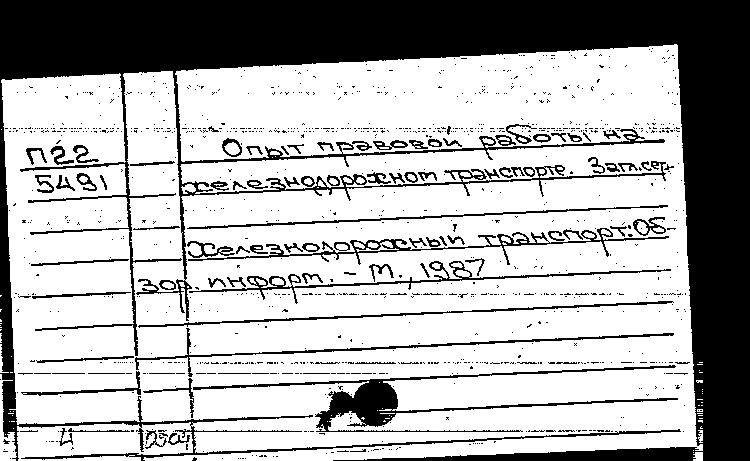 П22 Опыт правовой работы на
5491 железнодорожном транспорте. Загл.сер.
Железнодорожный транспорт: Об-
зор. информ. – М., 1987
4 0504